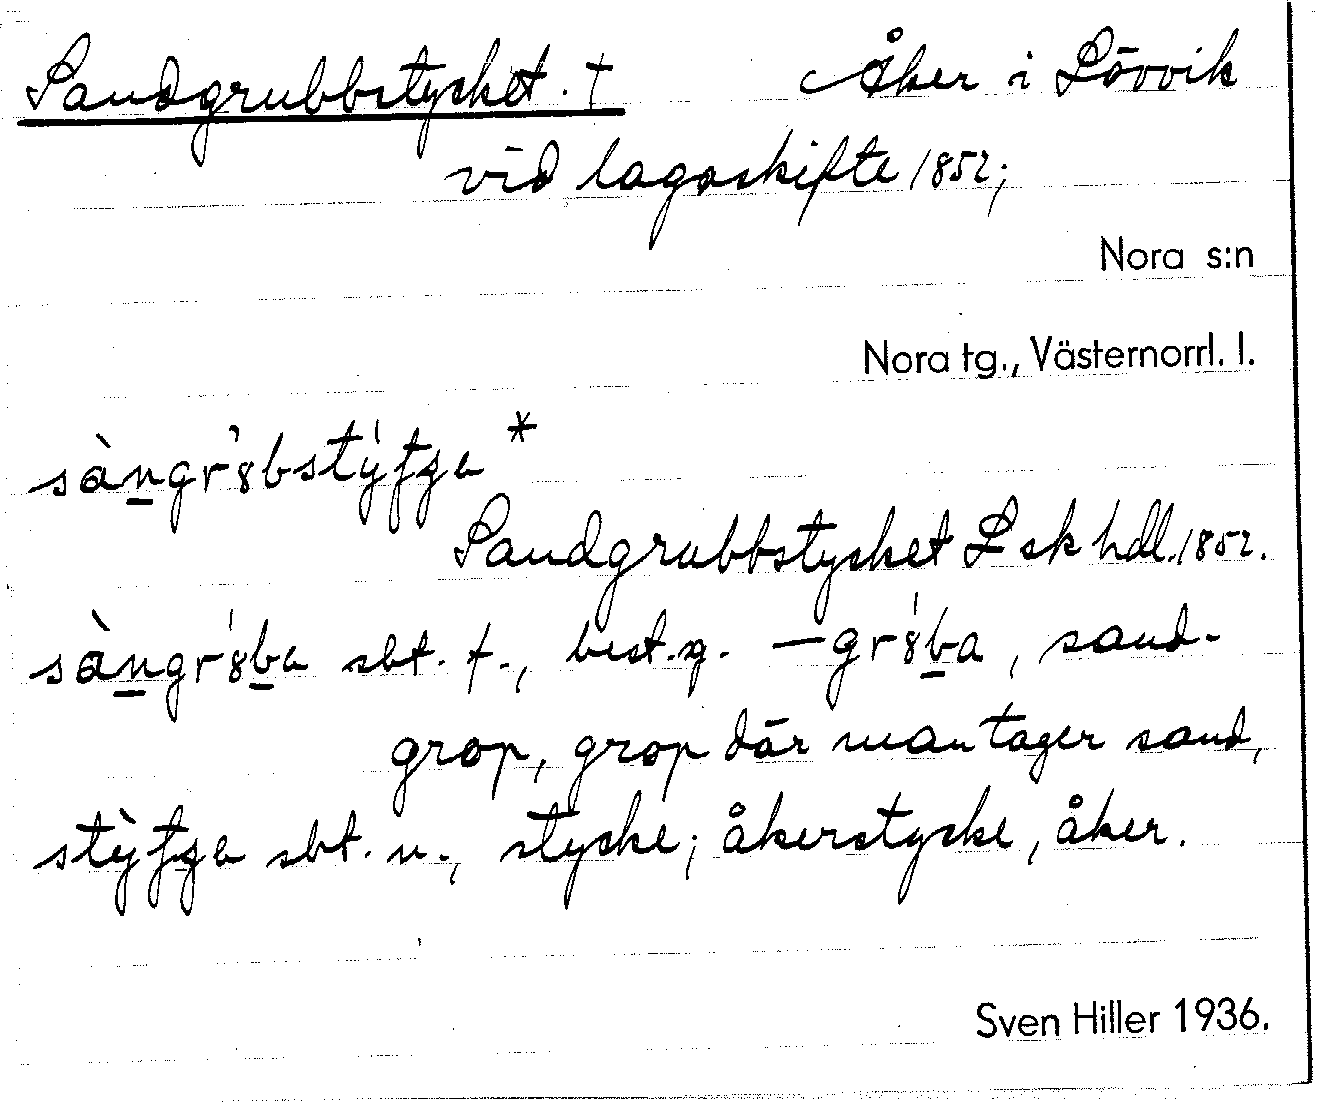 Sandgrubbstycket. † Åker i Lövvik
vid lagaskifte 1852;
Nora s:n
Nora tg., Västernorrl. l.
sàngr8bstýfʒa *
Sandgrubbstycket L sk hdl. 1852.
sàngr8ba sbt. f., best. f. —gr8ba, sand-
grop, grop där man tager sand,
stỳfʒa sbt. n., stycke; åkerstycke, åker.
Sven Hiller 1936.